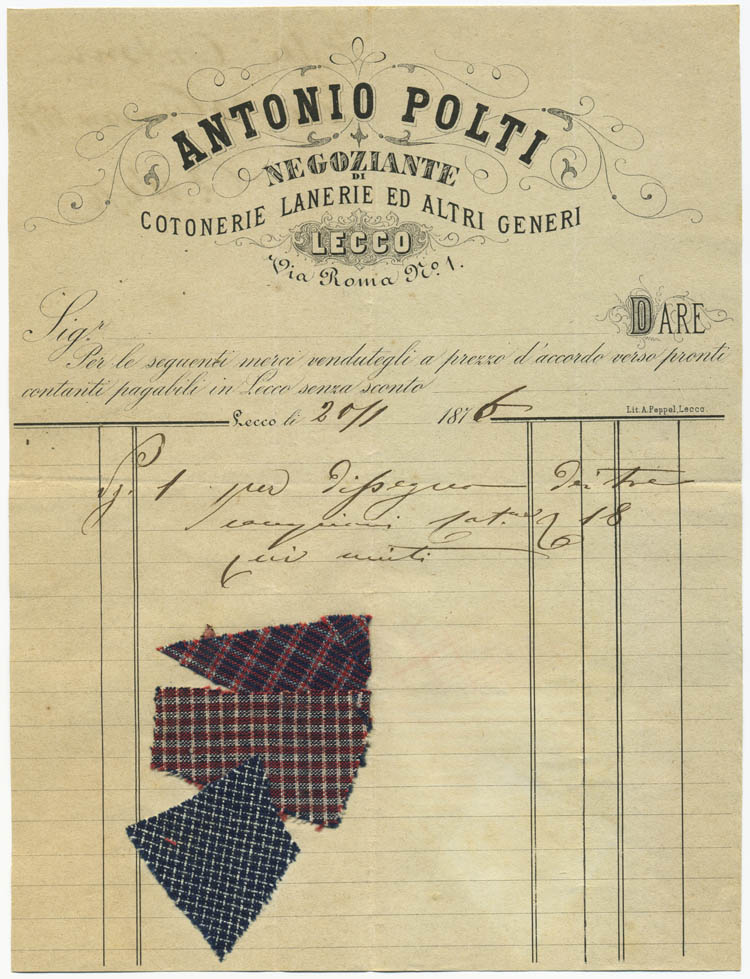 ANTONIO POLTI
NEGOZIANTE
DI
COTONERIE LANERIE ED ALTRI GENERI
LECCO
Via Roma No. 1.
DARE
Sig.r
Per le seguenti merci vendutegli a prezzo d'accordo verso pronti
contanti pagabili in Lecco senza sconto
Lecco li 20/1 1876
Lit. A. Peppel, Lecco.
1 per dissegno dei tre
campioni 18
qui uniti